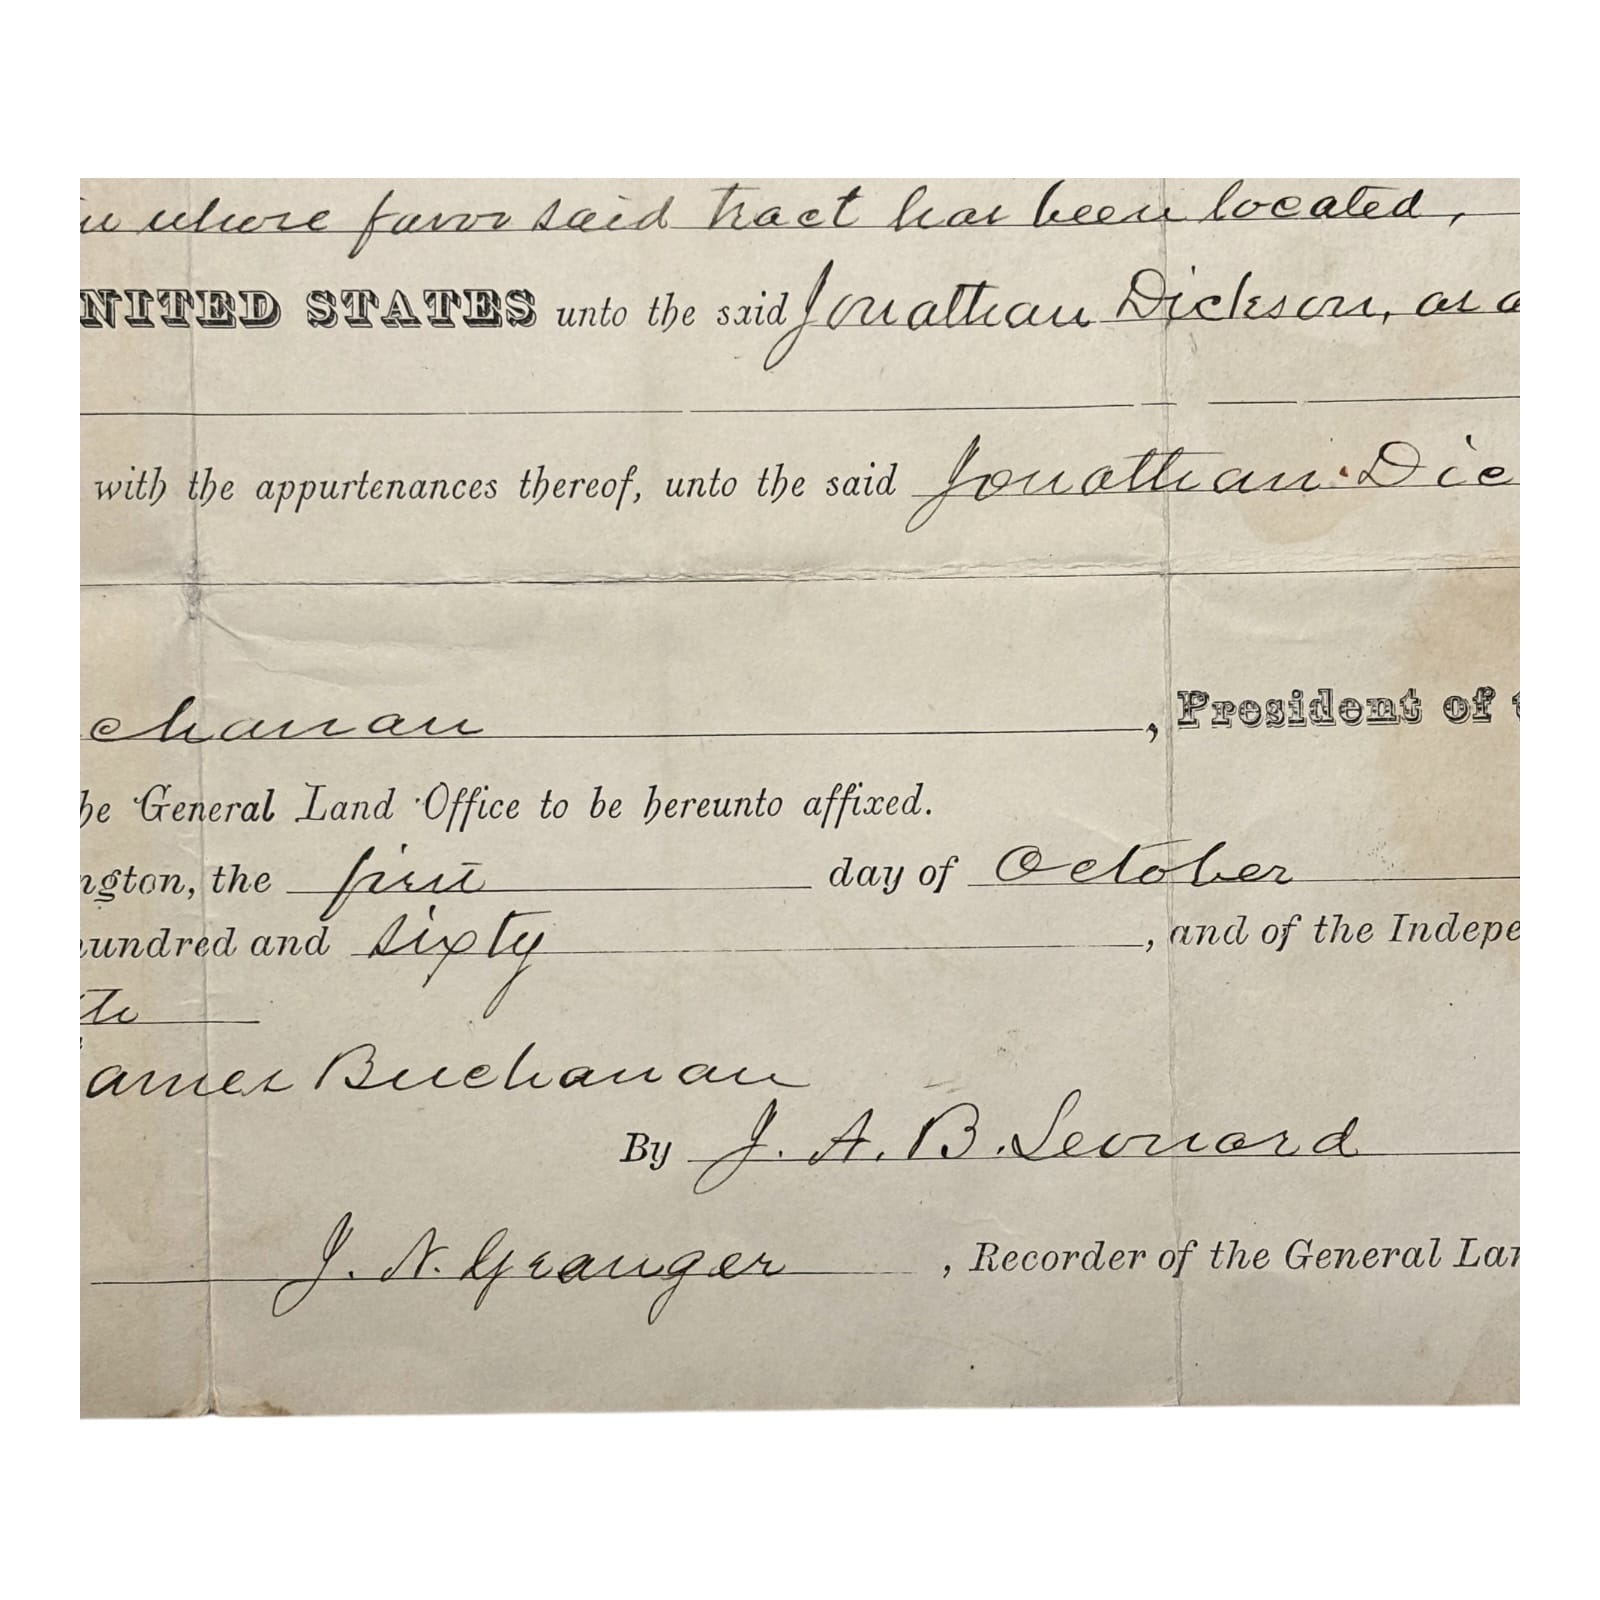 in whose favor said tract has been located,
NITED STATES unto the said Jonathan Dickson, as a
with the appurtenances thereof, unto the said Jonathan Dic
chanan, President of t
he General Land Office to be hereunto affixed.
ngton, the first day of October
hundred and sixty, and of the Indepe
th
ames Buchanan
By J. A. B. Leonard
J. N. Granger, Recorder of the General Lan